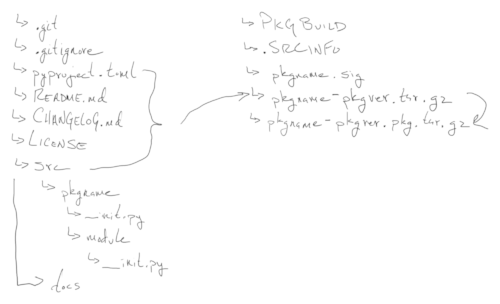 ↳ .git
↳ .gitignore
↳ pyproject.toml
↳ README.md
↳ CHANGELOG.md
↳ LICENSE
↳ src
↳ pkgname
↳ __init.py
↳ module
↳ __init.py
↳ docs
↳ PKGBUILD
↳ .SRCINFO
↳ pkgname.sig
↳ pkgname-pkgver.tar.gz
↳ pkgname-pkgver.pkg.tar.gz